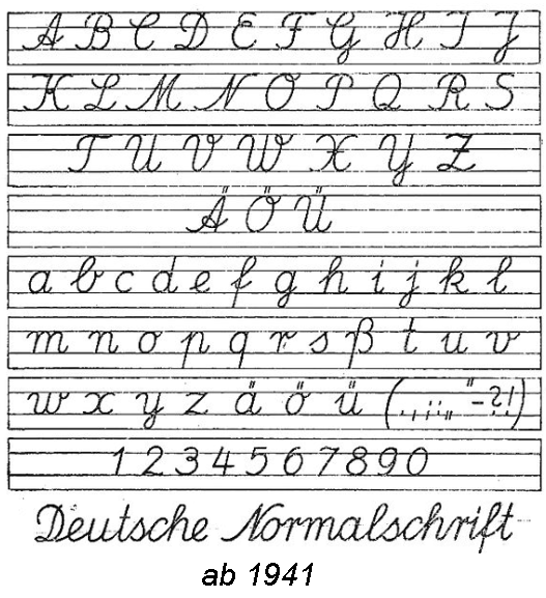 A B C D E F G H I J
K L M N O P Q R S
T U V W X Y Z
Ä Ö Ü
a b c d e f g h i j k l
m n o p q r s ß t u v
w x y z ä ö ü (. , ; : „ " - ? ! )
1 2 3 4 5 6 7 8 9 0
Deutsche Normalschrift
ab 1941